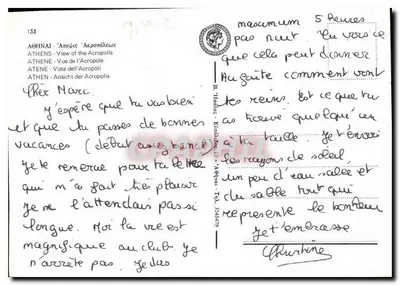 155
ΑΘΗΝΑΙ - Ἄποψις Ἀκροπόλεως
ATHENS - View of the Acropolis
ATHENE - Vue de l'Acropole
ATENE - Vista dell'Acropoli
ATHEN - Ansicht der Acropolis
Cher Marc.
J'espère que tu vas bien
et que tu passes de bonnes
vacances (début
Je te remercie pour ta lettre
qui m'a fait très plaisir
Je ne l'attendais pas si
longue. Moi la vie est
magnifique au club. Je
n'arrête pas. Je dors
maxamum 5 heures
par nuit. Tu vois ce
que cela peut donner
comment vont
tes reins. Est ce que tu
as trouvé quelqu'un
à ta taille. Je t'envoi
les rayons de soleil
un peu d'eau salée et
du sable tout qui
represente le bonheur
Je t'embrasse
Christine